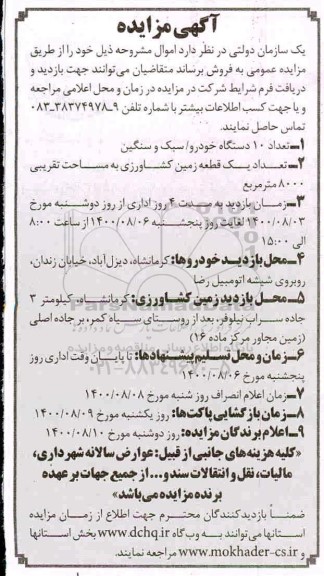 آگهی مزایده
یک سازمان دولتی در نظر دارد اموال مشروحه ذیل خود را از طریق
مزایده عمومی به فروش برساند متقاضیان می‌توانند جهت بازدید و
دریافت فرم شرایط شرکت در مزایده در زمان و محل اعلامی مراجعه
و یا جهت کسب اطلاعات بیشتر با شماره تلفن ۹-۳۸۳۷۴۹۷۸-۰۸۳
تماس حاصل نمایند.
۱ـ تعداد ۱۰ دستگاه خودرو/ سبک و سنگین
۲ـ تعداد یک قطعه زمین کشاورزی به مساحت تقریبی
۸۰۰۰ مترمربع
۳ـ زمان بازدید به مدت ۴ روز اداری از روز دوشنبه مورخ
۱۴۰۰/۰۸/۰۳ لغایت روز پنجشنبه ۱۴۰۰/۰۸/۰۶ از ساعت ۸:۰۰
الی ۱۵:۰۰
۴ـ محل بازدید خودروها: کرمانشاه، دیزل‌آباد، خیابان زندان،
روبروی شیشه اتومبیل رضا
۵ـ محل بازدید زمین کشاورزی: کرمانشاه، کیلومتر ۳
جاده سراب نیلوفر، بعد از روستای سیاه کمر، بر جاده اصلی
(زمین مجاور مرکز ماده ۱۶)
۶ـ زمان و محل تسلیم پیشنهادها: تا پایان وقت اداری روز
پنجشنبه مورخ ۱۴۰۰/۰۸/۰۶
۷ـ زمان اعلام انصراف روز شنبه مورخ ۱۴۰۰/۰۸/۰۸
۸ـ زمان بازگشایی پاکت‌ها: روز یکشنبه مورخ ۱۴۰۰/۰۸/۰۹
۹ـ اعلام برندگان مزایده: روز دوشنبه مورخ ۱۴۰۰/۰۸/۱۰
«کلیه هزینه‌های جانبی از قبیل: عوارض سالانه شهرداری،
مالیات، نقل و انتقالات سند و... از جمیع جهات بر عهده
برنده مزایده می‌باشد»
ضمناً بازدیدکنندگان محترم جهت اطلاع از زمان مزایده
استانها می‌توانند به وب‌گاه www.dchq.ir بخش استانها
و www.mokhader-cs.ir مراجعه نمایند.
ParsNamadData